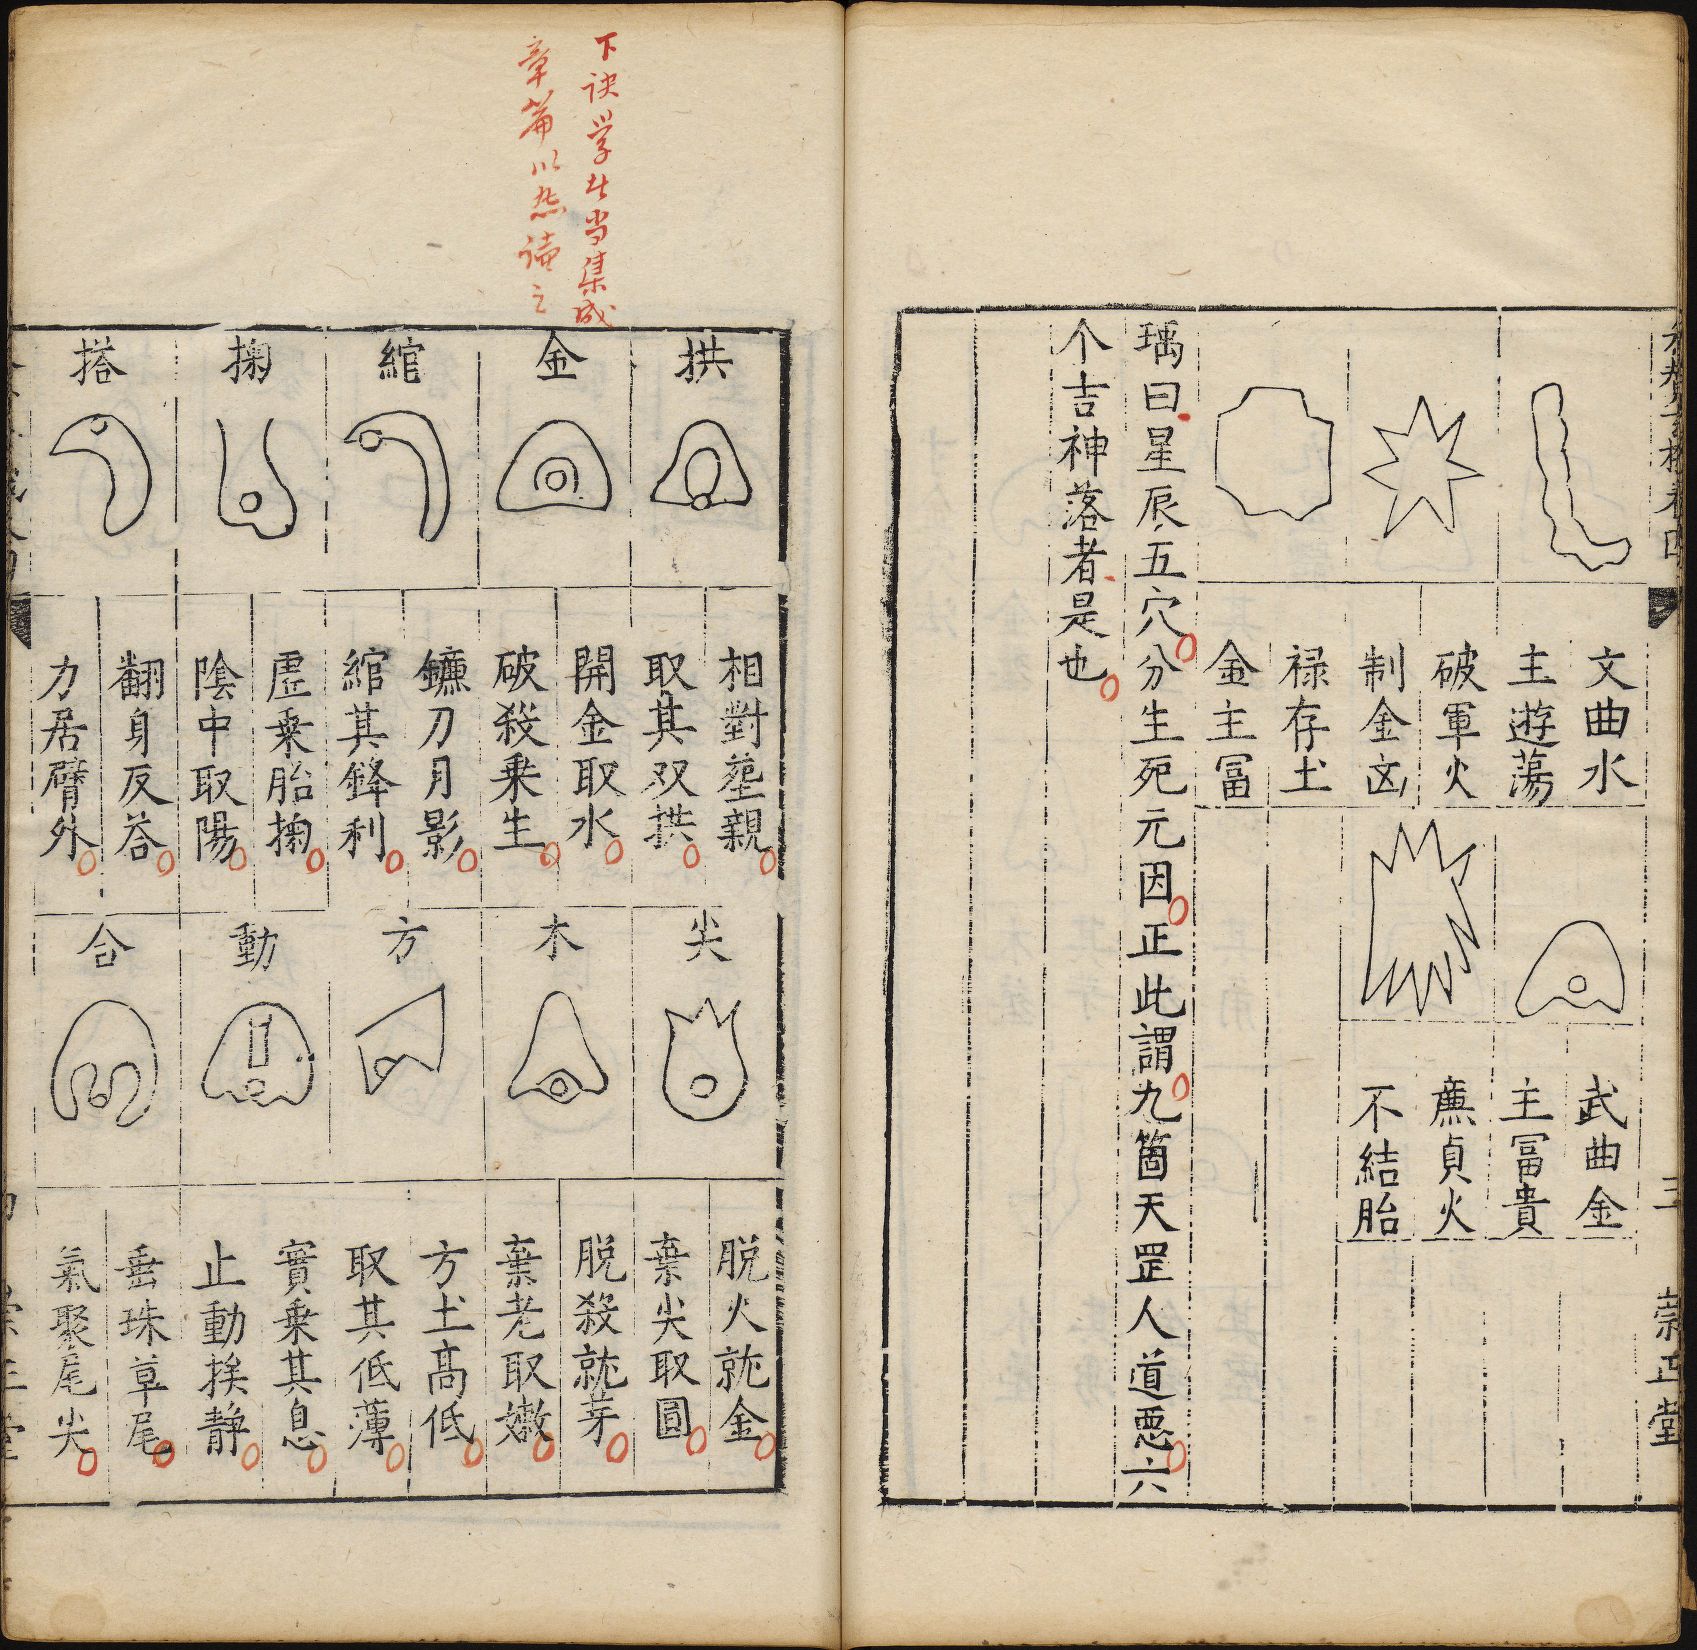 文曲水
主遊蕩
破軍火
制金凶
禄存土
金主冨
武曲金
主冨貴
廉貞火
不結胎
瑀曰星辰五穴分生死元因正此謂九箇天罡人道惡六
个吉神落者是也
三
崇正堂
下诀学者当集成
章篇以熟讀之
拱
相對堂親
取其双拱
金
開金取水
破殺乗生
綰
鐮刀月影
綰其鋒利
掬
虛乗胎掬
陰中取陽
搭
翻身反荅
力居臂外
尖
脱火就金
棄尖取圓
木
脱殺就芽
棄老取嫩
方
方土高低
取其低薄
動
實乗其息
止動挨静
合
垂珠草尾
氣聚尾尖